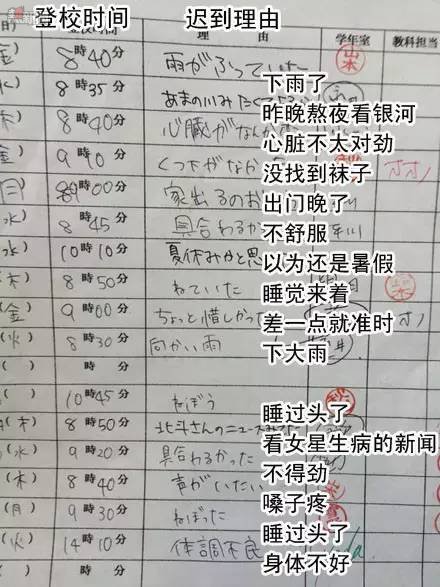 登校时间 迟到理由
日) 登校時間 理 由 学年室 教科担当
金) 8時40分 雨がふっていた 山本 下雨了
水) 8時35分 あまの川みたくて 昨晚熬夜看银河
木) 8時40分 心臓がなんか 心脏不太对劲
金) 9時10分 くつ下がなかった 没找到袜子 オオノ
月) 9時00分 家出るのお 出门晚了
(水) 8時45分 具合わるか 不舒服
水) 10時10分 夏休みかと思 以为还是暑假
木) 8時50分 ねていた 睡觉来着
(金) 9時00分 ちょっと惜しかった 差一点就准时
(火) 8時30分 向かい雨 下大雨
( ) 時 分
( ) 10時45分 ねぼう 睡过头了
(木) 8時50分 北斗さんのニュース 看女星生病的新闻
(水) 9時20分 具合わるかった 不得劲
(木) 8時40分 声がいたい 嗓子疼
(月) 9時30分 ねぼった 睡过头了
(火) 14時10分 体調不良 身体不好